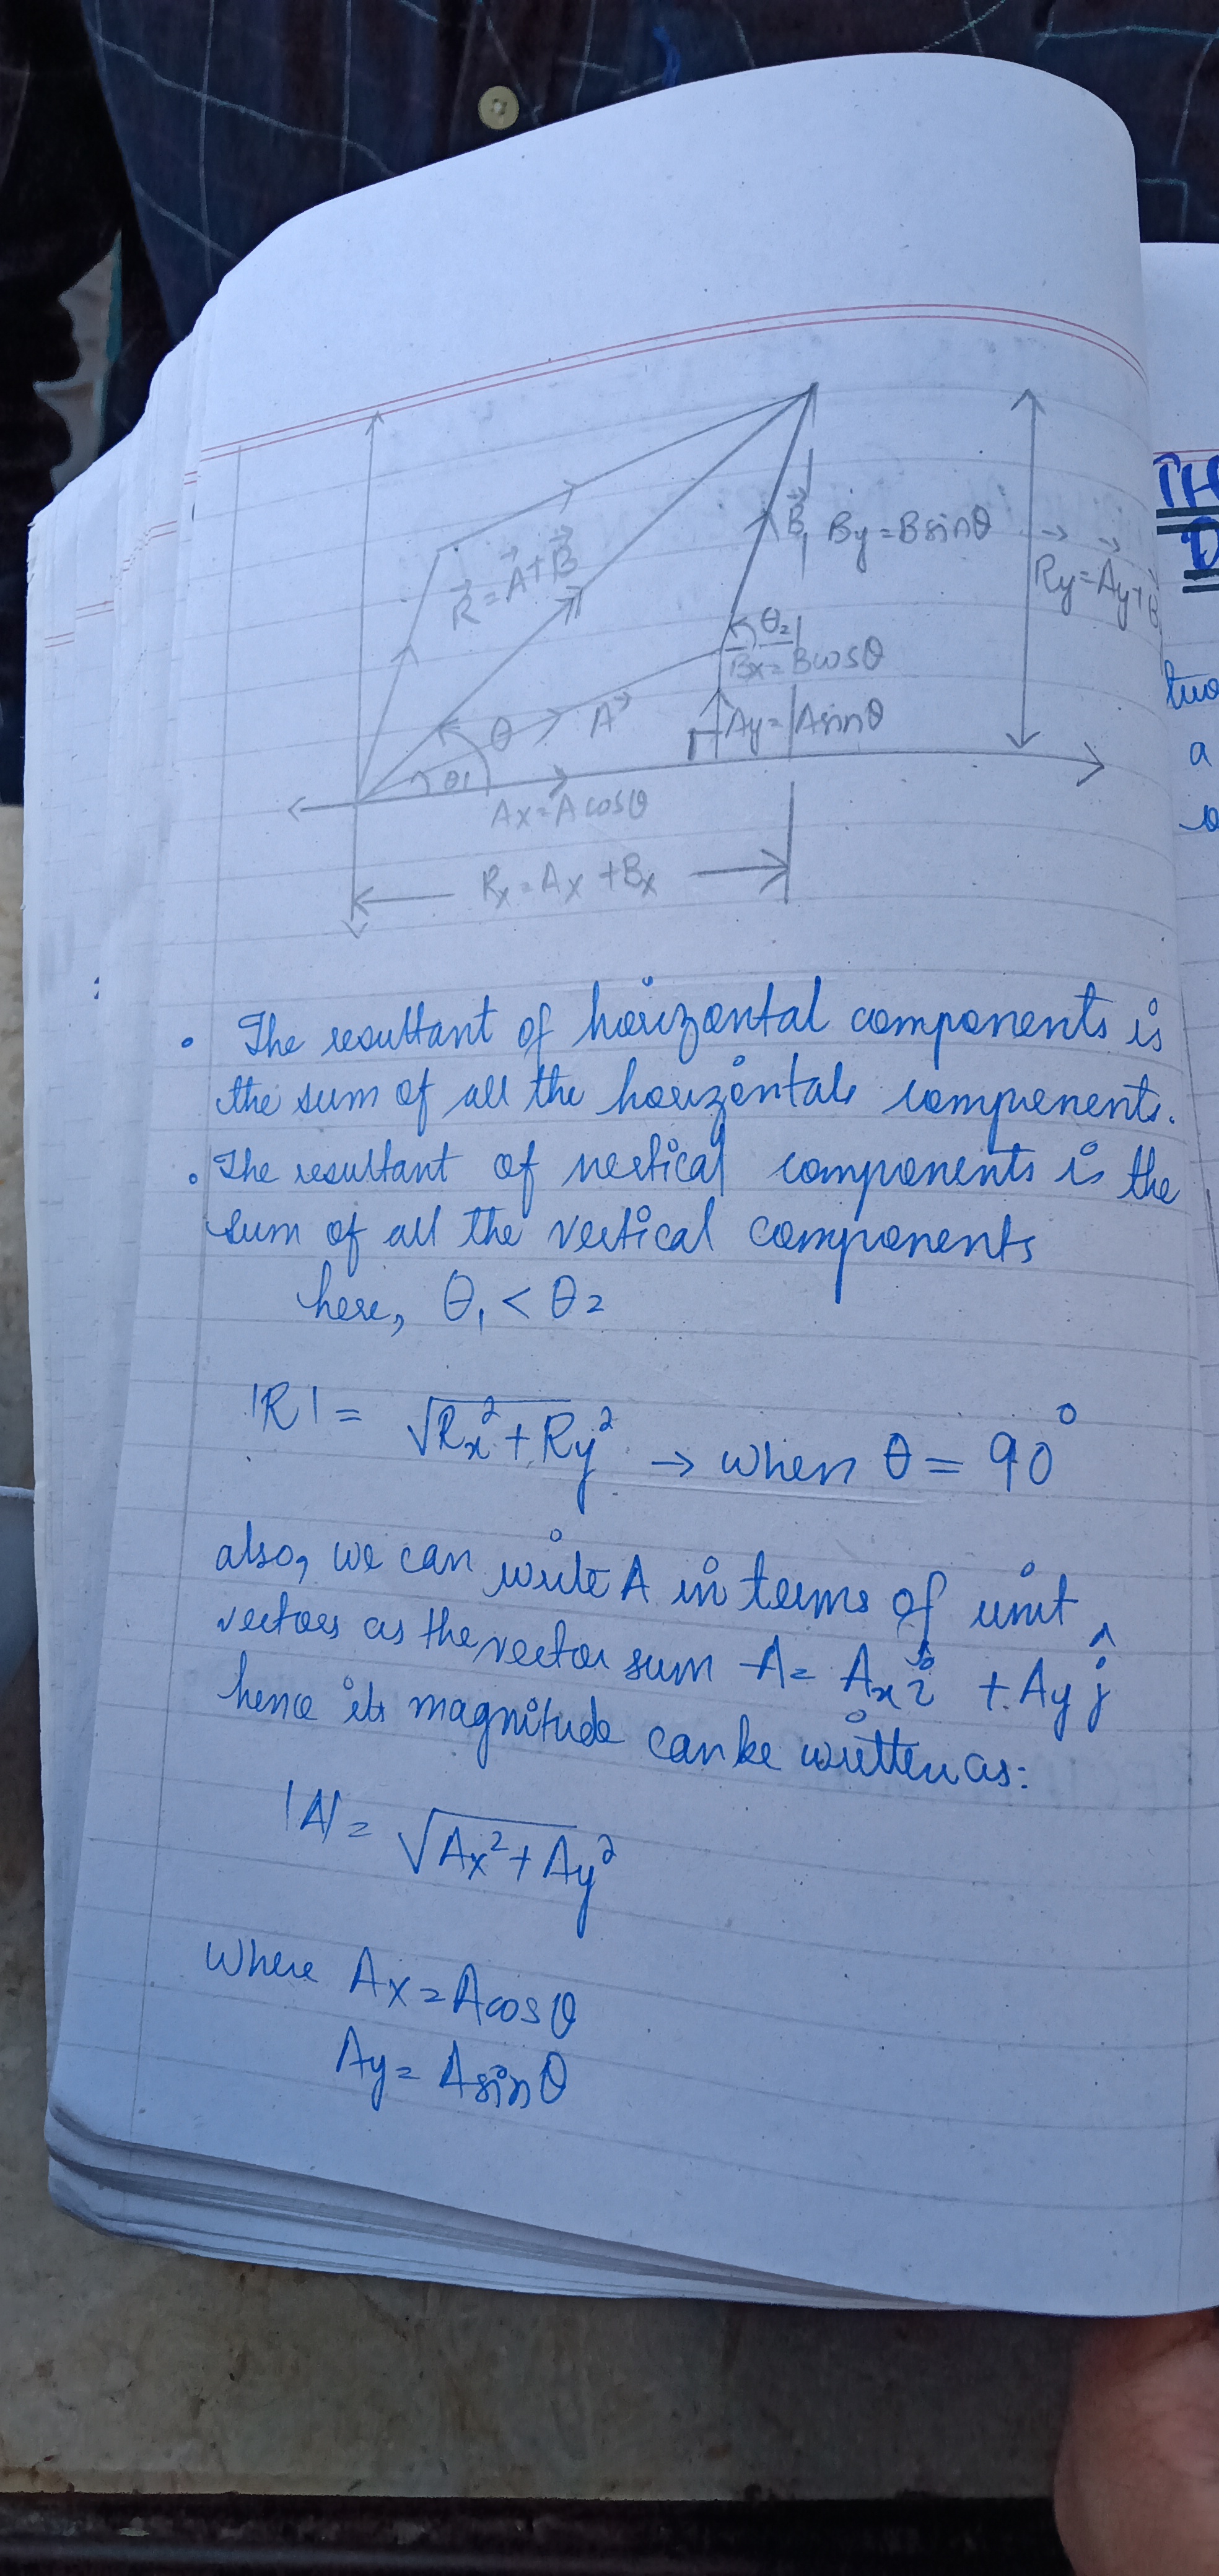 R⃗ = A⃗ + B⃗
B⃗
By = Bsinθ
R⃗y = A⃗y +
θ₂
Bx = Bcosθ
θ
A
Ay = Asinθ
θ1
Ax = A cosθ
Rx = Ax + Bx
TH
D
two
a
• The resultant of horizontal components is
the sum of all the horizontal components.
• The resultant of vertical components is the
sum of all the vertical components
here, θ₁ < θ₂
|R| = √Rx² + Ry² → when θ = 90°
also, we can write A in terms of unit
vectors as the vector sum A = Ax î + Ay ĵ
hence its magnitude can be written as:
|A| = √Ax² + Ay²
where Ax = Acosθ
Ay = Asinθ